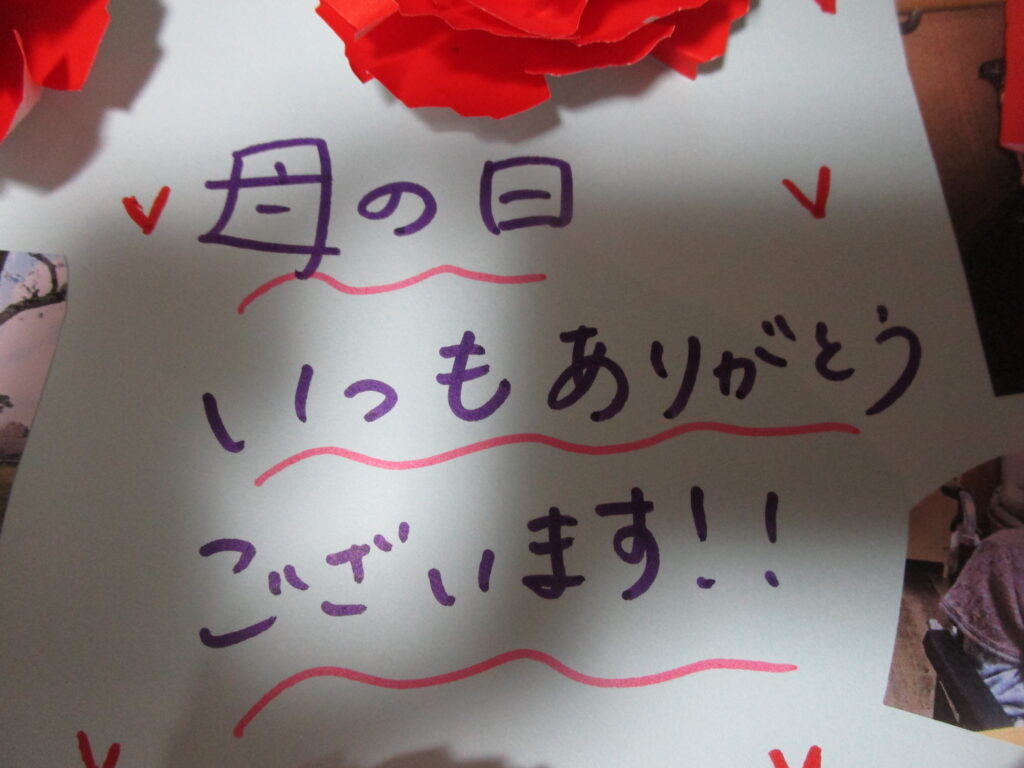 母の日
いつもありがとう
ございます!!